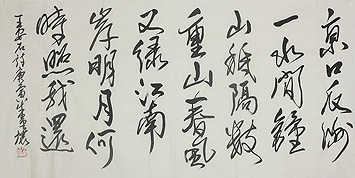 京口瓜洲
一水間鐘
山祗隔數
重山春風
又绿江南
岸明月何
時照我還
王安石詩